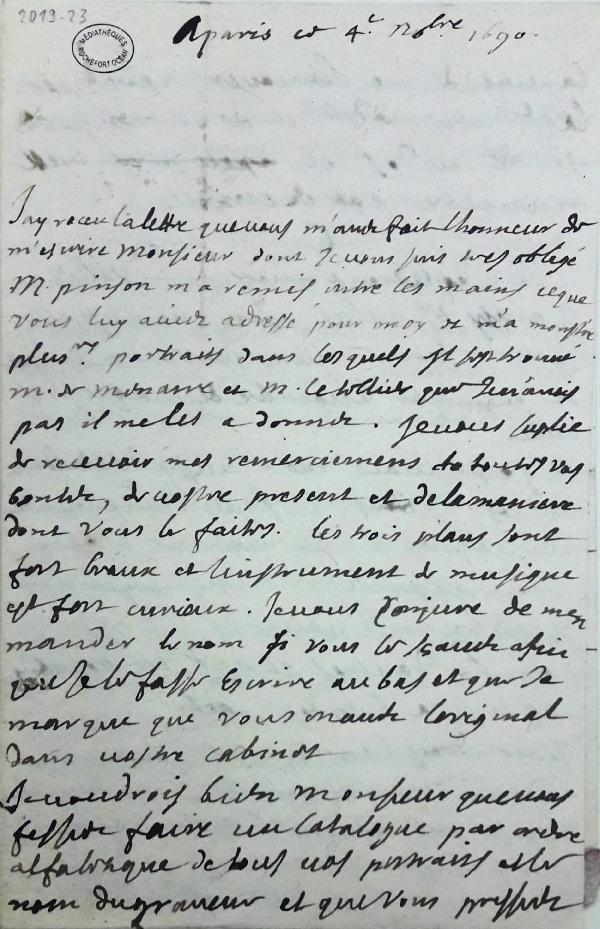 2019-23
MÉDIATHÈQUES
ROCHEFORT OCÉAN
A paris ce 4e 1690.
J'ay receu la lettre que vous m'avés fait lhonneur de
m'escrire Monsieur dont Je vous suis tres obligé
M. pinson m'a remis entre les mains ce que
vous luy aviés adressé pour moy et m'a monstré
plusrs portraits dans lesquels st trouvé
m. de et m. le tellier que
pas il me les a donnés. Je vous suplie
de recevoir mes remerciemens de toutes vos
bontés, de vostre present et de la maniere
dont vous le faites. les trois plans sont
fort beaux et linstrument de musique
est fort curieux. Je vous conjure de men
mander le nom si vous le scavés afin
que Je le fasse Escrire au bas et que Je
marque que vous l'original
dans vostre cabinet
Je voudrois bien Monsieur que vous
fissiés faire un catalogue par ordre
alfabeique de tous vos portraits et le
nom du graveur et que vous